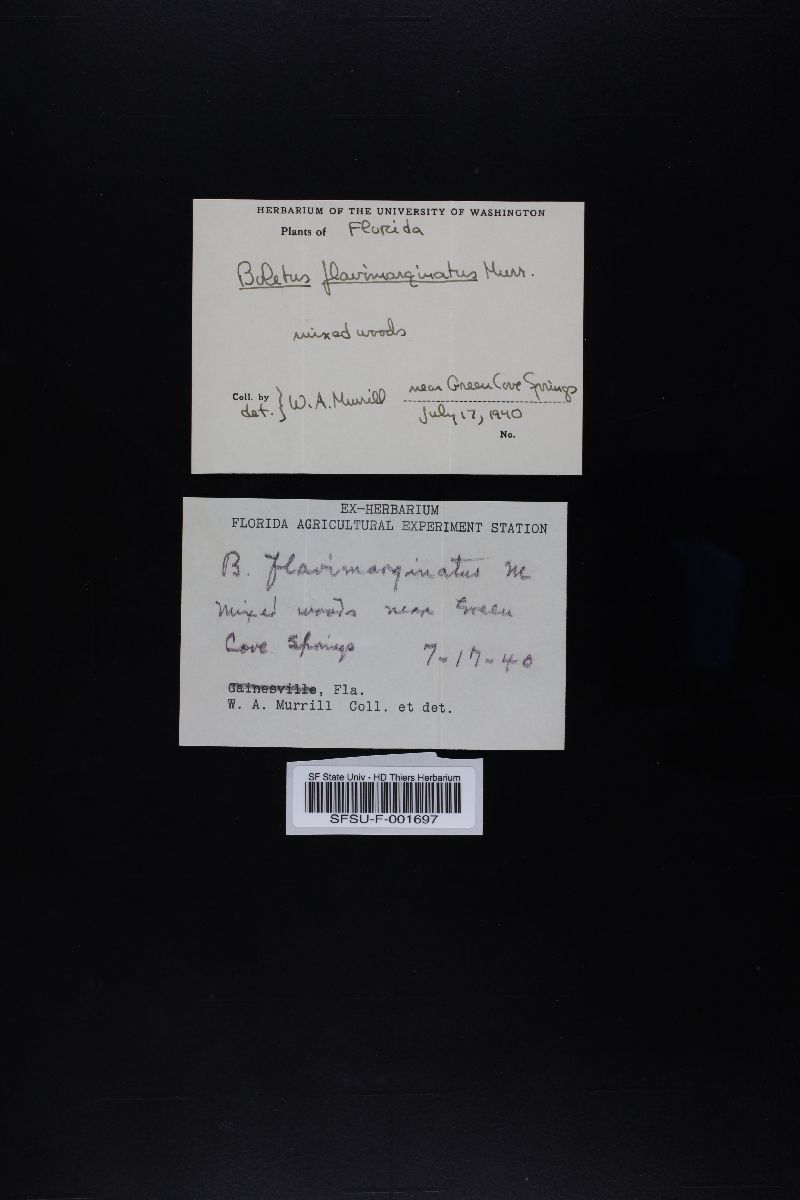 HERBARIUM OF THE UNIVERSITY OF WASHINGTON
Plants of Florida
Boletus flavimarginatus Murr.
mixed woods
near Green Cove Springs
Coll. by
det. } W. A. Murrill
July 17, 1940
No.
EX-HERBARIUM
FLORIDA AGRICULTURAL EXPERIMENT STATION
B. flavimarginatus M
Mixed woods near Green
Cove Springs 7-17-40
Gainesville, Fla.
W. A. Murrill Coll. et det.
SF State Univ - HD Thiers Herbarium
SFSU-F-001697